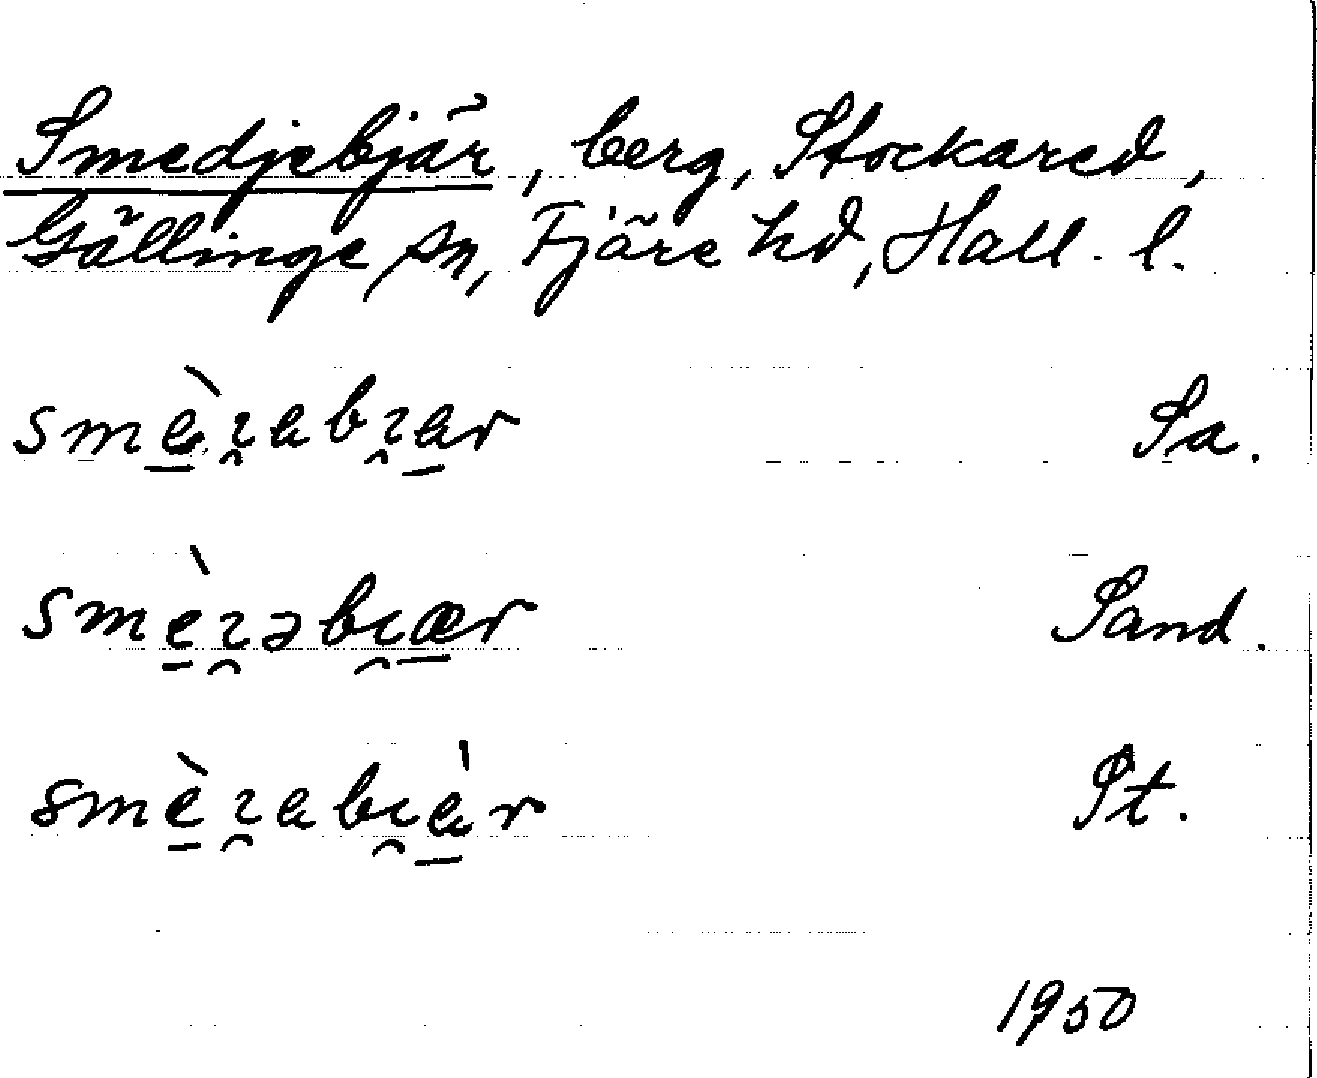 Smedjebjär, berg, Stockared,
Gällinge sn, Fjäre hd, Hall. l.
smè̠ı̯ɐbı̯ɐ̠r Sa.
smè̠ı̯əbı̯æ̠r Sand.
smè̠ı̯ɐbı̯ɐ̠̀r St.
1950